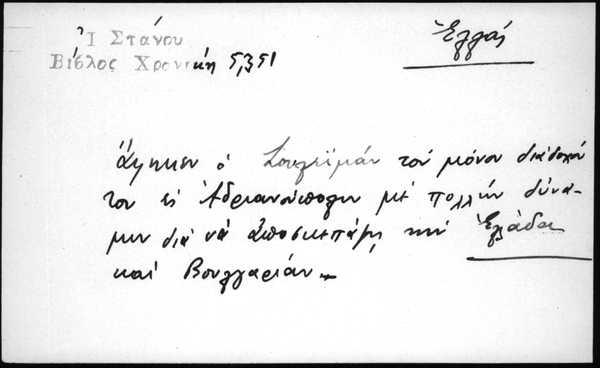 Ἑλλάς
Ἰ Στάνου
Βίβλος Χρονική 5,351
ἄφηκεν ὁ Σουλεϊμάν τόν μόνον διάδοχόν
του εἰς Ἀδριανούπολιν μέ πολλήν δύνα-
μιν διά νά ἀποσκεπάσῃ τήν Ἑλλάδα
καί Βουλγαρίαν.